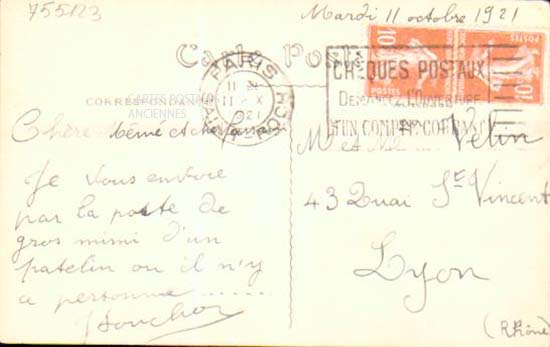 755123
Mardi 11 octobre 1921
Carte Postale
CORRESPONDANCE
CARTES POSTALES
ANCIENNES
PARIS
11
11 X
21
10c POSTES
POSTES 10c
CHÈQUES POSTAUX
DEMANDEZ L'OUVERTURE
D'UN COMPTE COURANT
Chère Mémé et cher
Je vous envoie
par la poste de
gros mimi d'un
patelin ou il n'y
a personne ......
M et Mme Velin
43 Quai St Vincent
Lyon
(Rhône)